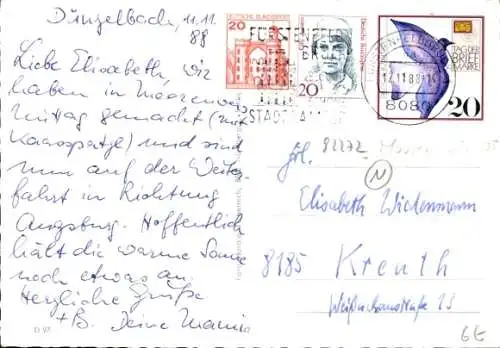 Dünzelbach, 11.11
88
Liebe Elisabeth, wir
haben in Moorenweis
Mittag gemacht (mit
Kaasspatzl) und sind
nun auf der Weiter-
fahrt in Richtung
Augsburg. Hoffentlich
hält die warme Sonne
noch etwas an.
Herzliche Grüße
+ B. Deine Mami
D 97
20 DEUTSCHE BUNDESPOST
20
Deutsche Bundespost
TAG DER
BRIEF
MARKE
20
FÜRSTENFELD
STADT
12.11.88
8080
Frl. 82272
N
Elisabeth Wiedenmann
8185 Kreuth
23
6€